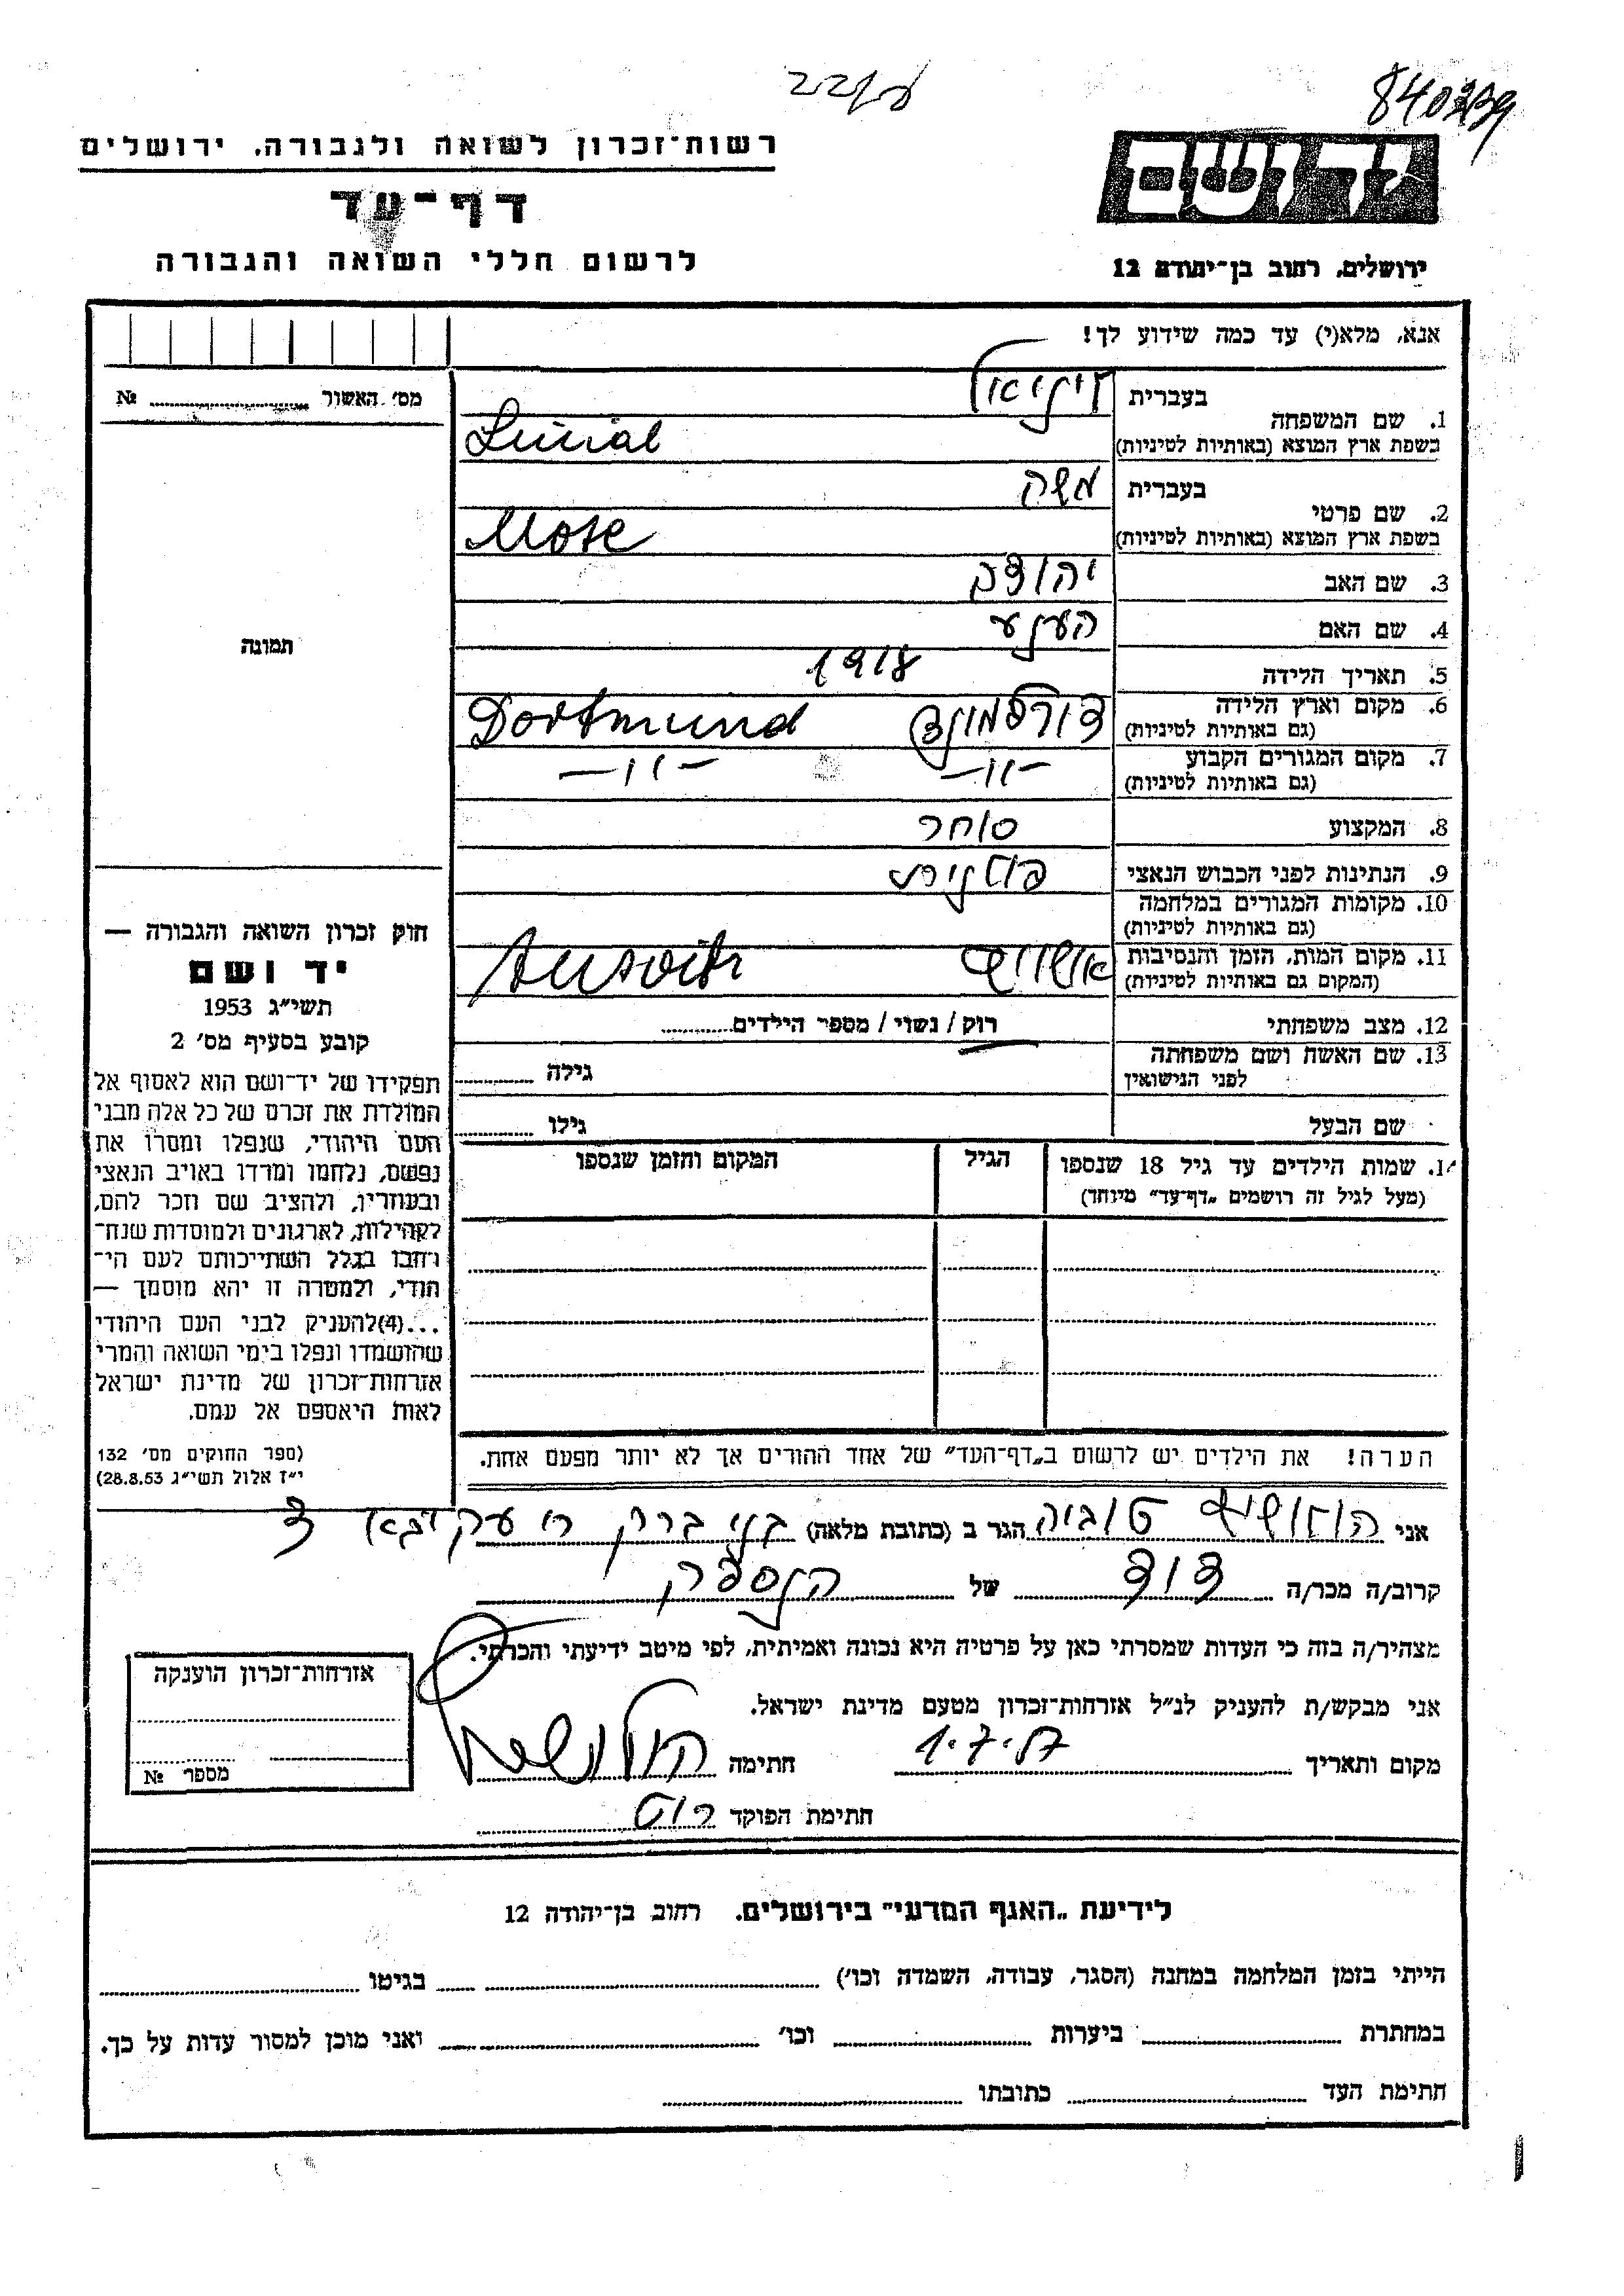 840239
רשות־זכרון לשואה ולגבורה, ירושלים
דף־עד
לרשום חללי השואה והגבורה
ירושלים, רחוב בן־יהודה 12
אנא, מלא(י) עד כמה שידוע לך!
מס׳ האשור № 
1. שם המשפחה
בעברית
בשפת ארץ המוצא (באותיות לטיניות) Linial
2. שם פרטי
בעברית משה
בשפת ארץ המוצא (באותיות לטיניות) Mose
3. שם האב יהודה
4. שם האם הענע
5. תאריך הלידה 1918
6. מקום וארץ הלידה (גם באותיות לטיניות) דורטמונד Dortmund
7. מקום המגורים הקבוע (גם באותיות לטיניות) —״— —״—
8. המקצוע סוחר
9. הנתינות לפני הכבוש הנאצי פולנית
10. מקומות המגורים במלחמה (גם באותיות לטיניות)
11. מקום המות, הזמן והנסיבות (המקום גם באותיות לטיניות) אושויץ
12. מצב משפחתי רוק / נשוי / מספר הילדים
13. שם האשה ושם משפחתה לפני הנישואין גילה
שם הבעל גילו
תמונה
חוק זכרון השואה והגבורה —
יד ושם
תשי״ג 1953
קובע בסעיף מס׳ 2
תפקידו של יד־ושם הוא לאסוף אל
המולדת את זכרם של כל אלה מבני
העם היהודי, שנפלו ומסרו את
נפשם, נלחמו ומרדו באויב הנאצי
ובעוזריו, ולהציב שם וזכר להם,
לקהילות, לארגונים ולמוסדות שנח־
רבו בגלל השתייכותם לעם הי־
הודי, ולמטרה זו יהא מוסמך —
...(4)להעניק לבני העם היהודי
שהושמדו ונפלו בימי השואה והמרי
אזרחות־זכרון של מדינת ישראל
לאות היאספם אל עמם.
(ספר החוקים מס׳ 132
י״ז אלול תשי״ג 28.8.53)
14. שמות הילדים עד גיל 18 שנספו הגיל המקום והזמן שנספו
(מעל לגיל זה רושמים „דף־עד״ מיוחד)
הערה! את הילדים יש לרשום ב„דף־העד״ של אחד ההורים אך לא יותר מפעם אחת.
אני טוביה הגר ב (כתובת מלאה) בני ברק ר׳ עקיבא
קרוב/ה מכר/ה דוד של הנספה
מצהיר/ה בזה כי העדות שמסרתי כאן על פרטיה היא נכונה ואמיתית, לפי מיטב ידיעתי והכרתי.
אני מבקש/ת להעניק לנ״ל אזרחות־זכרון מטעם מדינת ישראל.
מקום ותאריך חתימה
חתימת הפוקד
אזרחות־זכרון הוענקה
מספר №
לידיעת „האגף המדעי״ בירושלים, רחוב בן־יהודה 12
הייתי בזמן המלחמה במחנה (הסגר, עבודה, השמדה וכו׳) בגיטו
במחתרת ביערות וכו׳ ואני מוכן למסור עדות על כך.
חתימת העד כתובתו